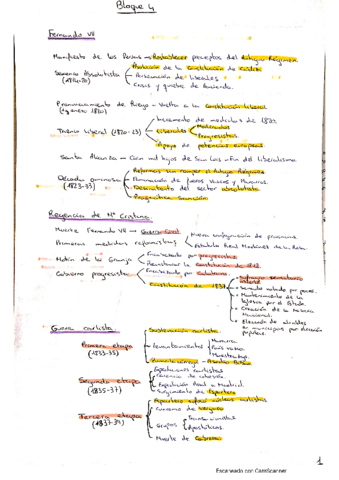 Bloque 4
Fernando VII
Manifiesto de los Persas - Restablecer preceptos del Antiguo Régimen
Sexenio Absolutista
(1814-20)
Abolición de la Constitución de Cádiz
Persecución de liberales
Crisis y quiebra de hacienda.
Pronunciamiento de Riego - Vuelta a la Constitución liberal
(1 enero 1820)
Trienio liberal (1820-23)
Incremento de medidas de 1812.
Liberales
Moderados
Progresistas
Apoyo de potencias europeas
Santa Alianza - Cien mil hijos de San Luis - Fin del liberalismo
Década ominosa
(1823-33)
Reformas sin romper el Antiguo Régimen
Eliminación de fueros vascos y Navarros.
Descontento del sector absolutista
Pragmática Sanción
Regencia de Mª Cristina
Muerte Fernando VII - Guerra civil
Primeras medidas reformistas
Nueva configuración de provincias.
Estatuto Real Martínez de la Rosa
Motín de la Granja
Encabezado por progresistas
Reinstaurar la Constitución de 1812.
Gobierno progresista
Encabezado por Calatrava
Constitución de 1837
Sufragio censitario
Senado votado por pocos.
Mantenimiento de la Iglesia por el Estado.
Creación de la Milicia Nacional.
Elección de alcaldes en municipios por elección popular.
Guerra carlista
Primera etapa
(1833-35)
Sublevación carlista
Levantamientos
Navarra
País Vasco
Maestrazgo.
Segunda etapa
(1835-37)
Expediciones carlistas
Carencia de cohesión
Expedición Real a Madrid.
Surgimiento de Espartero
Tercera etapa
(1837-39)
Espartero sofocó núcleos carlistas
Convenio de Vergara
Grupos
Transaccionistas
Apostólicos.
Muerte de Cabrera
1
Escaneado con CamScanner